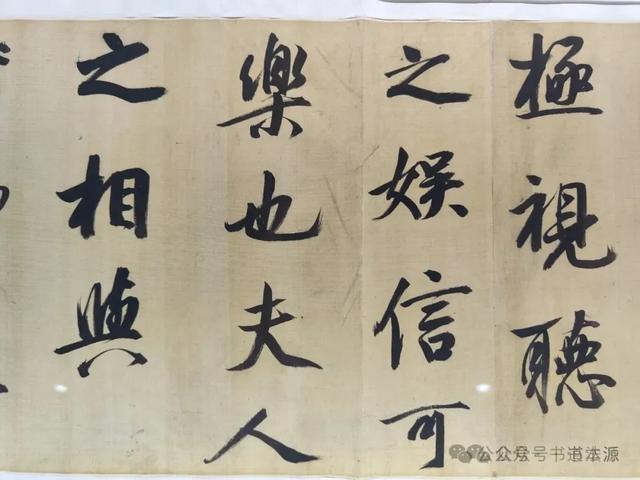 極視聽
之娛信可
樂也夫人
之相與
公众号·书道法源